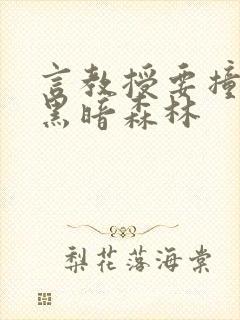 言教授要撞
黑暗森林
梨花落海棠